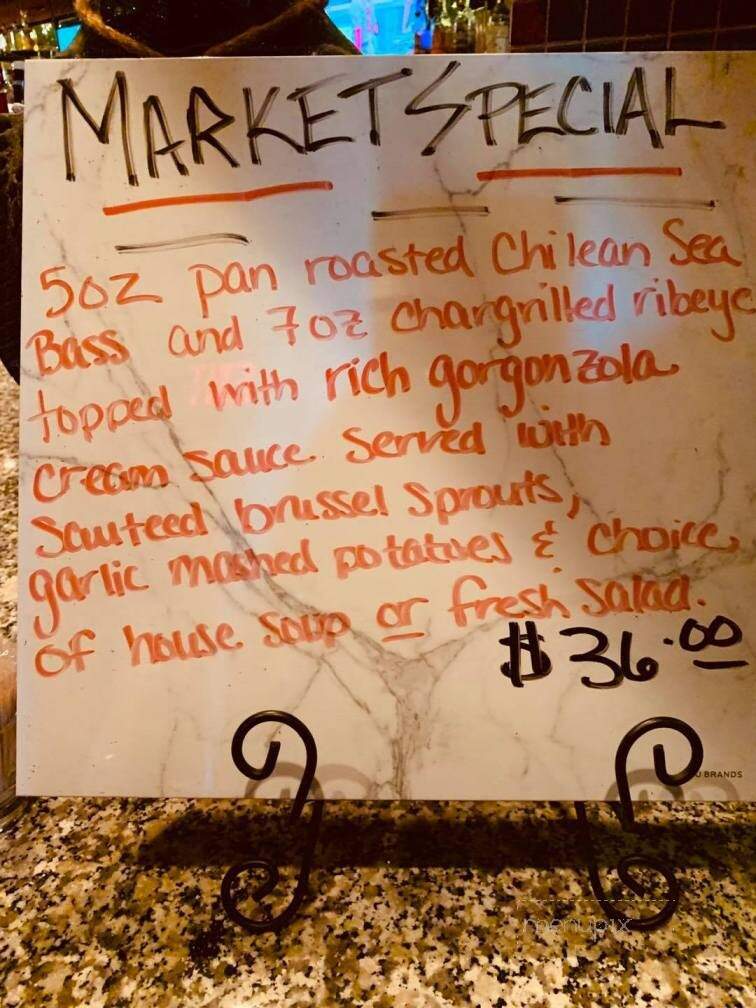 MARKET SPECIAL
5oz pan roasted Chilean Sea
Bass and 7oz chargrilled ribeye
topped with rich gorgonzola
cream sauce. Served with
Sauteed brussel sprouts,
garlic mashed potatoes & choice
of house soup or fresh salad.
$36.00
U BRANDS
menupix